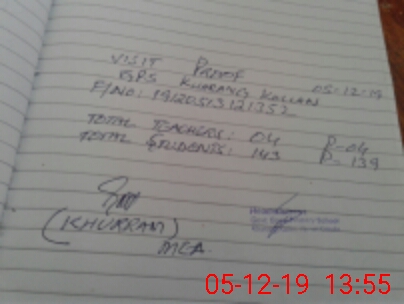 VISIT PROOF
GPS KHARANG KALLAN 05-12-19
F/NO: 19120513121352
TOTAL TEACHERS: 04 P-04
TOTAL STUDENTS: 143 P-139
(KHURRAM)
MEA.
05-12-19 13:55